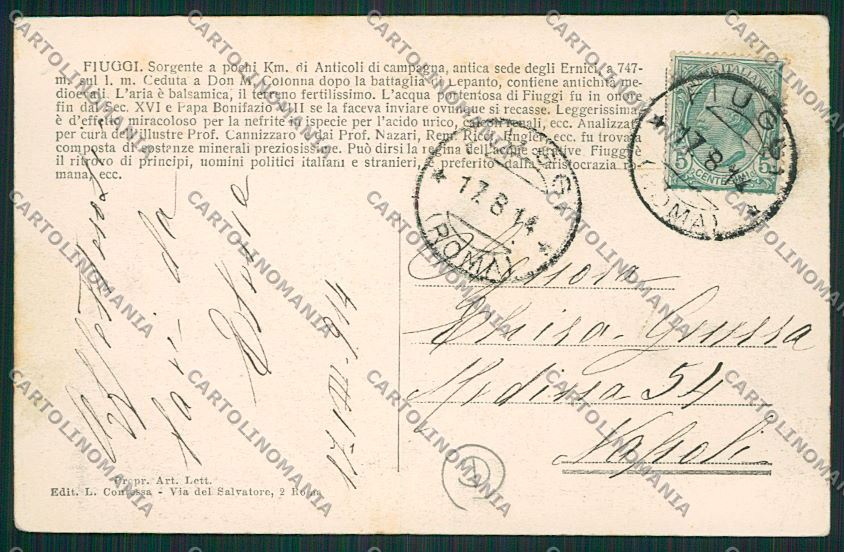 FIUGGI. Sorgente a pochi Km. di Anticoli di campagna, antica sede degli Ernici a 747
m. sul l. m. Ceduta a Don M. Colonna dopo la battaglia di Lepanto, contiene antichità me-
dioevali. L'aria è balsamica, il terreno fertilissimo. L'acqua portentosa di Fiuggi fu in onore
fin dal Sec. XVI e Papa Bonifazio VIII se la faceva inviare ovunque si recasse. Leggerissima
è d'effetto miracoloso per la nefrite in ispecie per l'acido urico, calcoli renali, ecc. Analizzata
per cura dell'illustre Prof. Cannizzaro e dai Prof. Nazari, Ricci, ecc. fu trovata
composta di sostanze minerali preziosissime. Può dirsi la regina delle acque curative. Fiuggi è
il ritrovo di principi, uomini politici italiani e stranieri, è preferito dalla aristocrazia ro-
mana, ecc.
POSTE ITALIANE
5
CENTESIMI
5
FIUGGI
17.8.14
(ROMA)
FIUGGI
17.8.14
(ROMA)
Affettuosi
da
17-VIII-914
Signora
Elvira
54
Napoli
Propr. Art. Lett.
Edit. L. Contessa - Via del Salvatore, 2 Roma
CARTOLINOMANIA